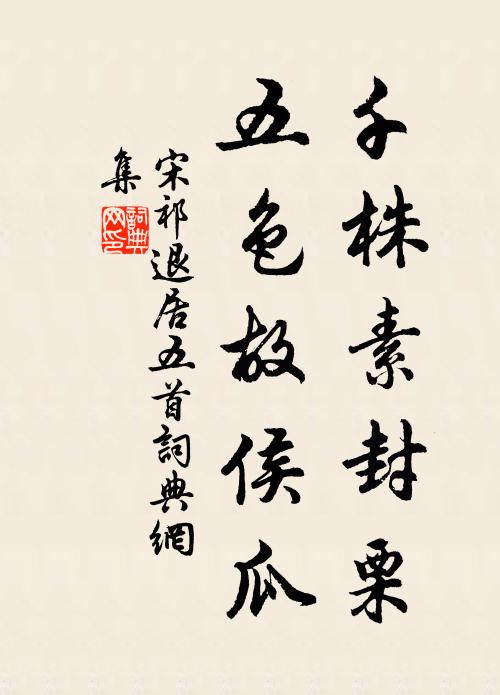 千株素封栗
五色故侯瓜
宋祁退居五首詞典網
集
詞典网印